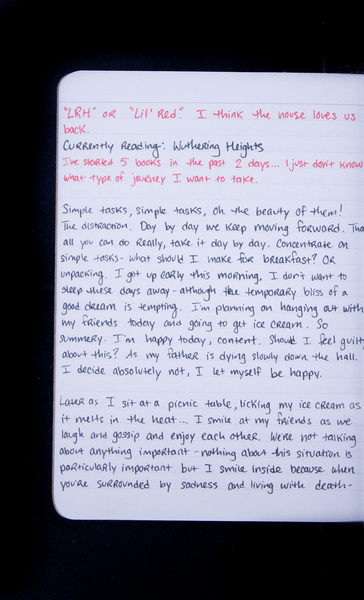 "LRH" or "Lil' Red." I think the house loves us
back.
Currently Reading: Wuthering Heights
I've started 5 books in the past 2 days... I just don't know
what type of journey I want to take.
Simple tasks, simple tasks, oh the beauty of them!
The distraction. Day by day we keep moving forward. That
all you can do really, take it day by day. Concentrate on
simple tasks- what should I make for breakfast? Or
unpacking. I got up early this morning, I don't want to
sleep these days away - although the temporary bliss of a
good dream is tempting. I'm planning on hanging out with
my friends today and going to get ice cream. So
summery. I'm happy today, content. Should I feel guilty
about this? As my father is dying slowly down the hall.
I decide absolutely not, I let myself be happy.
Later as I sit at a picnic table, licking my ice cream as
it melts in the heat... I smile at my friends as we
laugh and gossip and enjoy each other. We're not talking
about anything important - nothing about this situation is
particularly important but I smile inside because when
you're surrounded by sadness and living with death-